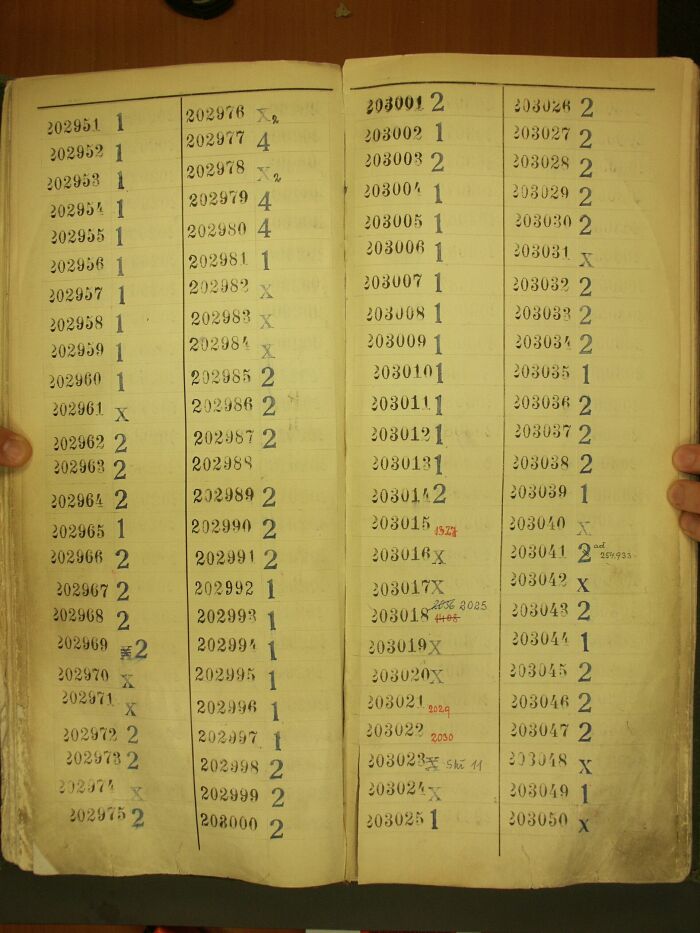 202951 1
202952 1
202953 1
202954 1
202955 1
202956 1
202957 1
202958 1
202959 1
202960 1
202961 x
202962 2
202963 2
202964 2
202965 1
202966 2
202967 2
202968 2
202969 x 2
202970 x
202971 x
202972 2
202973 2
202974 x
202975 2
202976 x 2
202977 4
202978 x 2
202979 4
202980 4
202981 1
202982 x
202983 x
202984 x
202985 2
202986 2
202987 2
202988
202989 2
202990 2
202991 2
202992 1
202993 1
202994 1
202995 1
202996 1
202997 1
202998 2
202999 2
203000 2
203001 2
203002 1
203003 2
203004 1
203005 1
203006 1
203007 1
203008 1
203009 1
203010 1
203011 1
203012 1
203013 1
203014 2
203015 1327
203016 x
203017 X
203018 2025
203019 X
203020 X
203021 2029
203022 2030
203023 x Ski 11
203024 X
203025 1
203026 2
203027 2
203028 2
203029 2
203030 2
203031 x
203032 2
203033 2
203034 2
203035 1
203036 2
203037 2
203038 2
203039 1
203040 x
203041 2 ad 254.933
203042 x
203043 2
203044 1
203045 2
203046 2
203047 2
203048 x
203049 1
203050 x